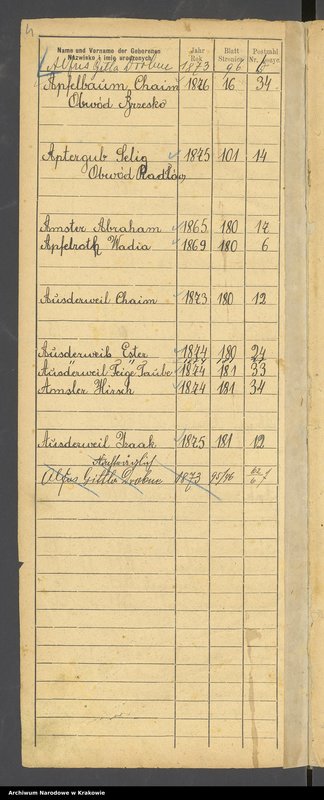 Name und Vorname der Geborenen Jahr Blatt Postzahl
Nazwisko i imię urodzonych Rok Stronica Nr. bieżąc.
Alfus Gitla Drobne 1873 96 6
Apfelbaum Chaim 1876 16 34
Obwód Brzesko
Aptergub Selig 1875 101 14
Obwód Radłów
Amster Abraham 1865 180 17
Apfelroth Wadia 1869 180 6
Ausderweil Chaim 1873 180 12
Ausderweil Ester 1874 180 24
Ausderweil Feige Taube 1874 181 33
Amsler Hirsch 1874 181 34
Ausderweil Izaak 1875 181 12
Nachträglich
Alfus Gittla Drobne 1873 95/96
Archiwum Narodowe w Krakowie